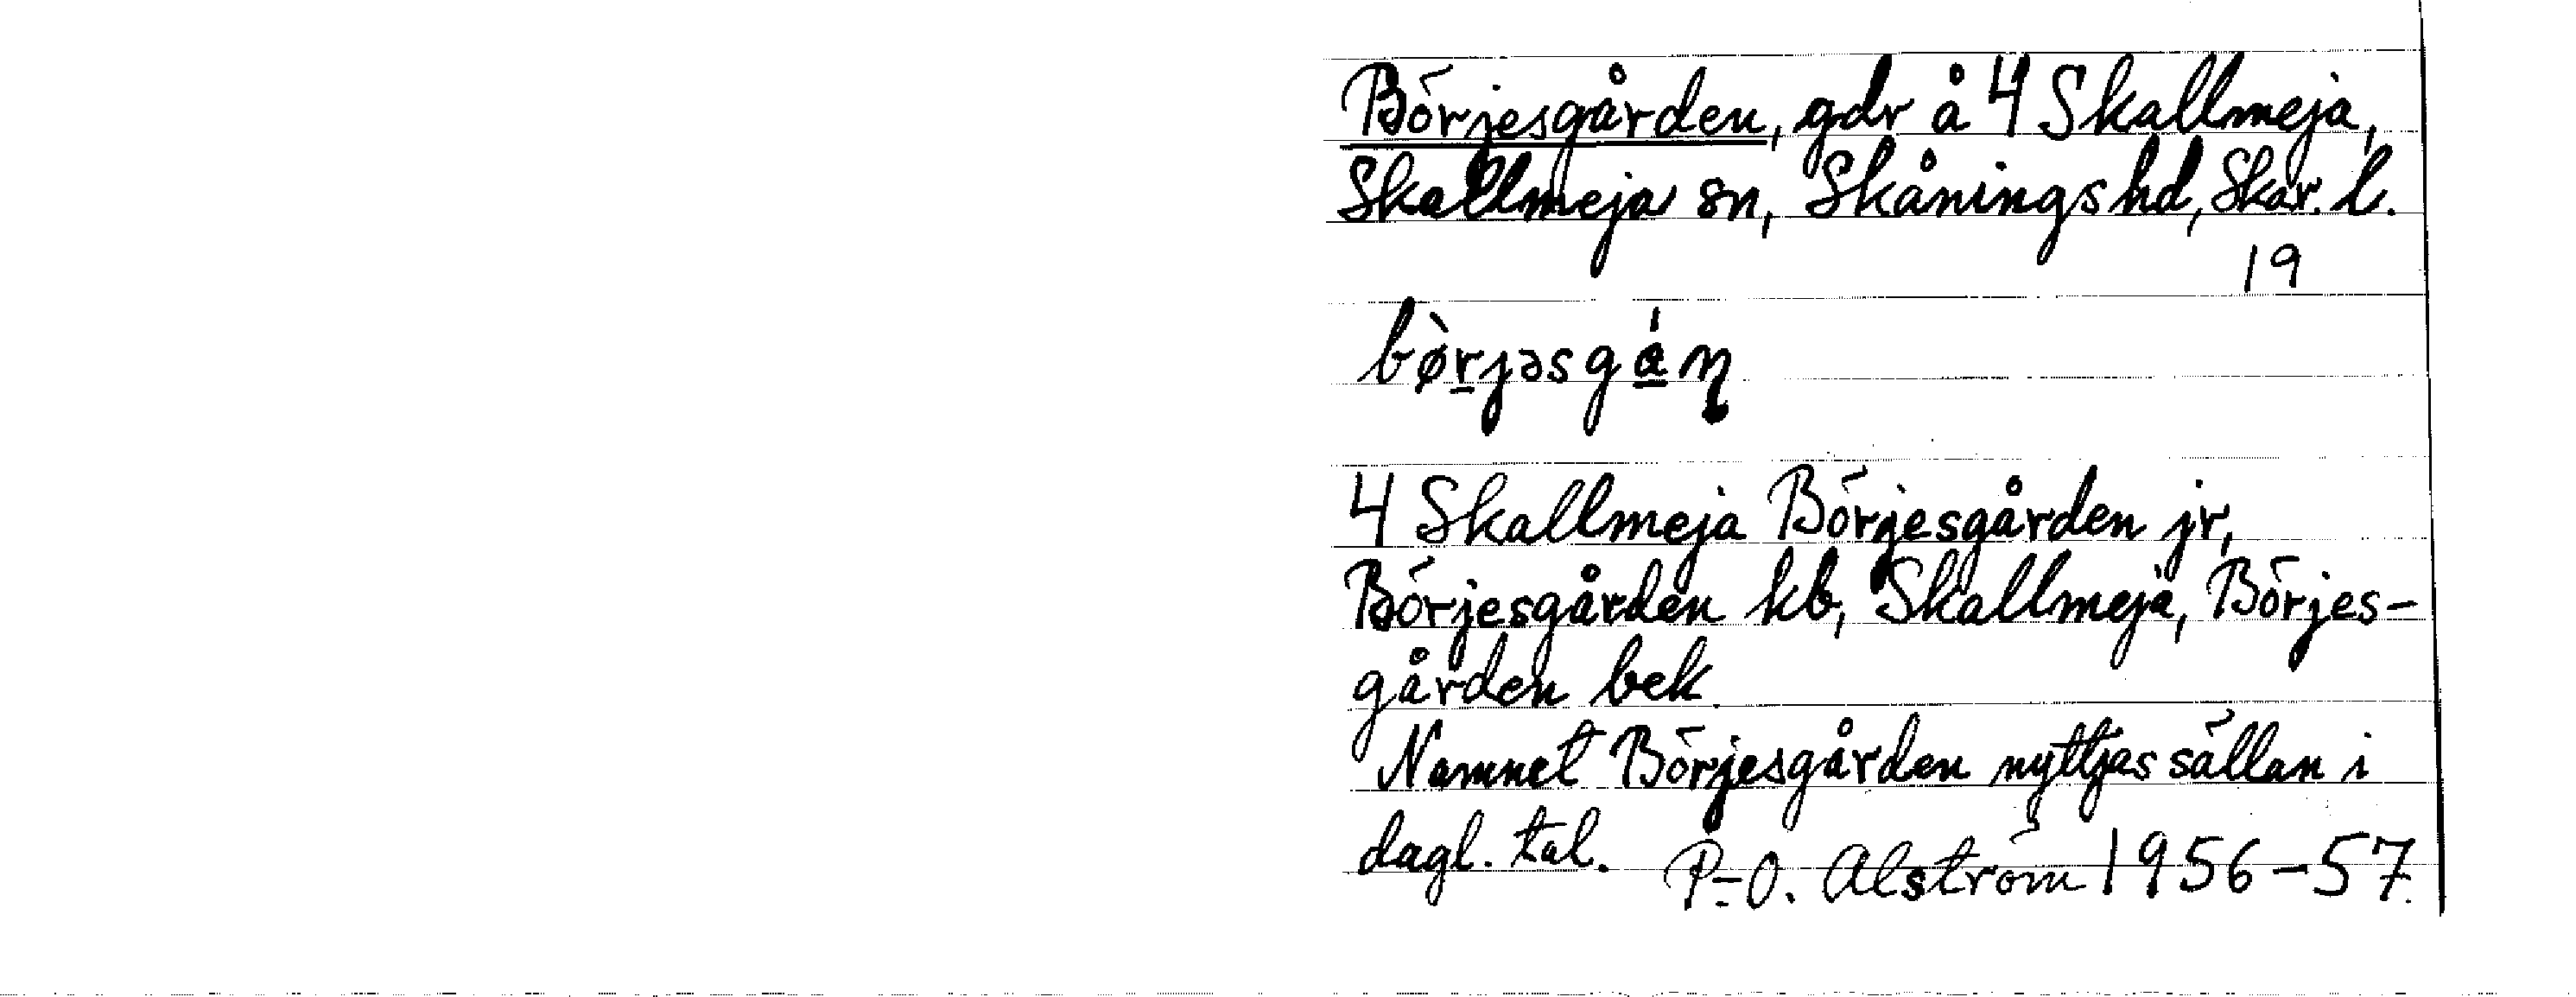 Börjesgården, gdr å 4 Skallmeja,
Skallmeja sn, Skånings hd, Skar. l.
19
bø̀r̠jəsgá̠ɳ
4 Skallmeja Börjesgården jr,
Börjesgården kb, Skallmeja, Börjes-
gården bek.
Namnet Börjesgården nyttjas sällan i
dagl. tal.
P.-O. Alström 1956-57.